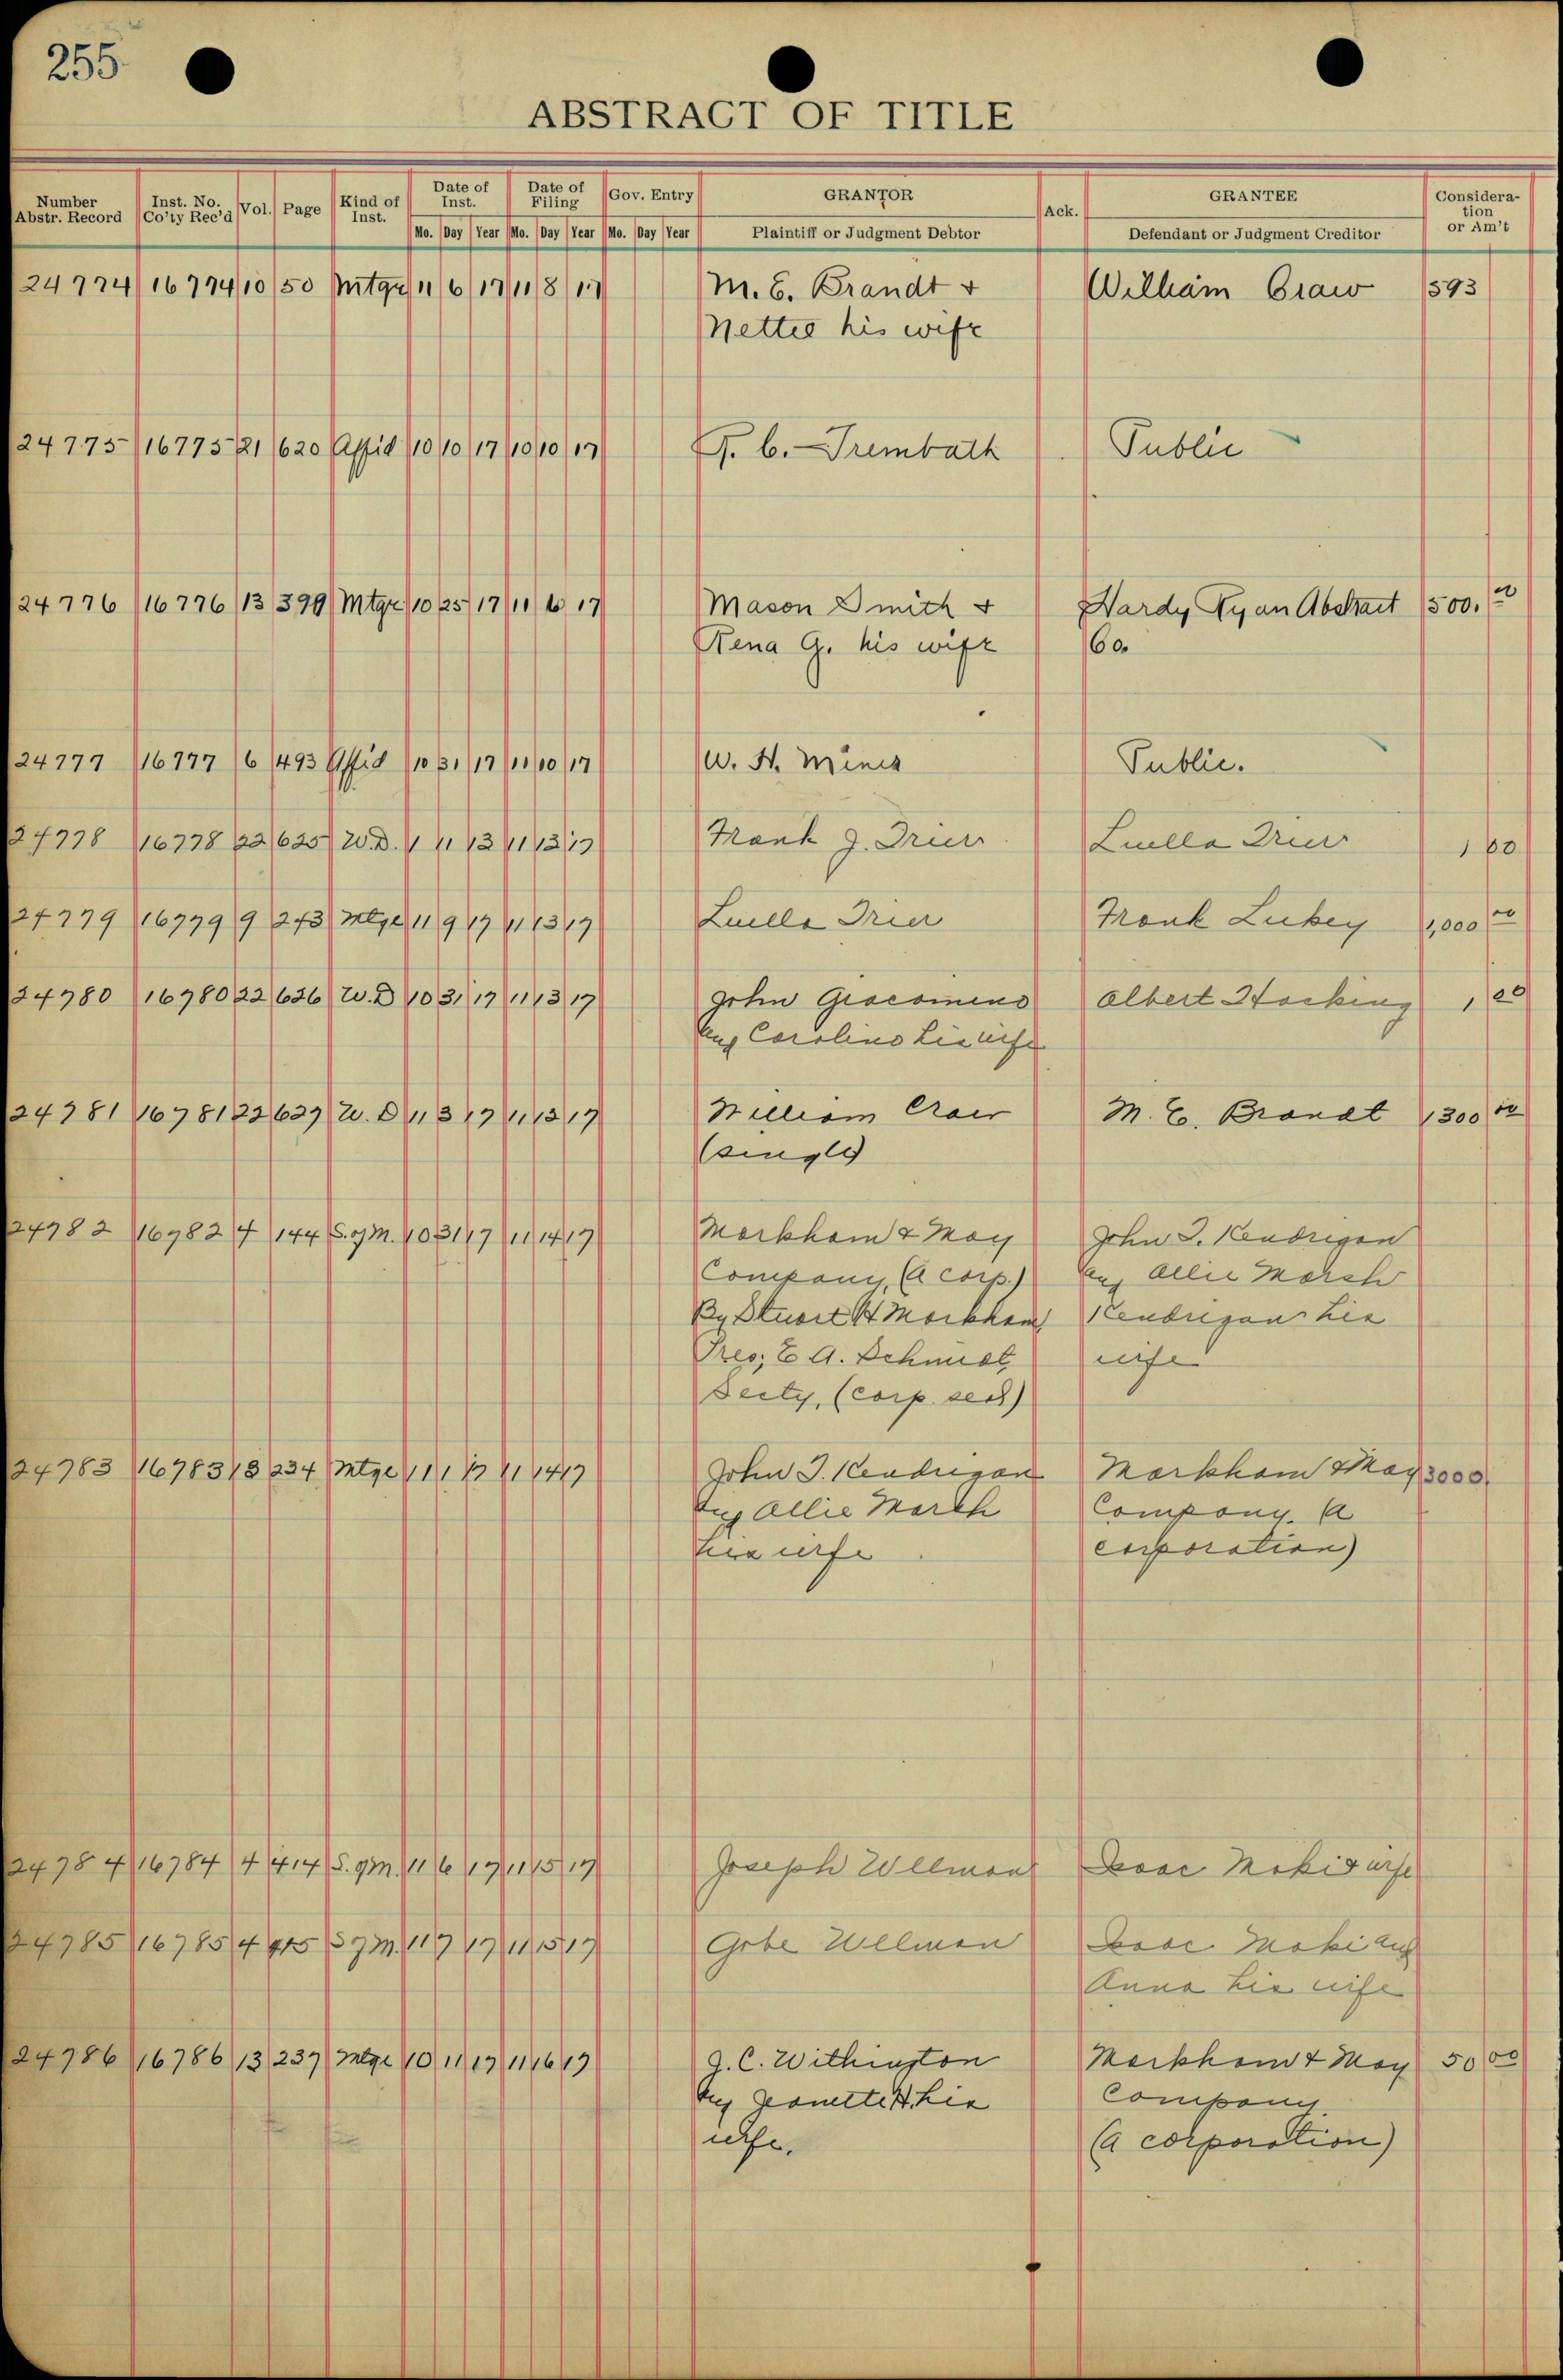 255
ABSTRACT OF TITLE
Number Abstr. Record Inst. No. Co'ty Rec'd Vol. Page Kind of Inst. Date of Inst. Date of Filing Gov. Entry GRANTOR Ack. GRANTEE Consideration or Am't
Mo. Day Year Mo. Day Year Mo. Day Year Plaintiff or Judgment Debtor Defendant or Judgment Creditor
24774 16774 10 50 Mtge 11 6 17 11 8 17 M. E. Brandt & William Craw 593
Nettie his wife
24775 16775 21 620 Affid 10 10 17 10 10 17 F. C. Trembath Public
24776 16776 13 399 Mtge 10 25 17 11 6 17 Mason Smith & Hardy Ryan Abstract 500.00
Rena G. his wife Co.
24777 16777 6 493 Affid 10 31 17 11 10 17 W. H. Mines Public.
24778 16778 22 625 W.D. 11 13 17 Frank J. Drier Luella Drier 1 00
24779 16779 9 243 Mtge 11 9 17 11 13 17 Luella Drier Frank Lukey 1,000 00
24780 16780 22 626 W.D 10 31 17 11 13 17 John Giacomino Albert Hocking 1 00
and Caroline his wife
24781 16781 22 627 W. D 11 3 17 11 13 17 William Craw M. E. Brandt 1300 00
(single)
24782 16782 4 144 S. of M. 10 31 17 11 14 17 Markham & May John J. Kendrigan
Company, (A corp.) and Allie March
By Stuart H Markham Kendrigan his
Pres; E A. Schmidt, wife
Secty, (corp. seal)
24783 16783 18 234 Mtge 11 1 17 11 14 17 John J. Kendrigan Markham & May 3000
and Allie March Company. (A
his wife corporation)
24784 16784 4 414 S. of M. 11 6 17 11 15 17 Joseph Wellman Isaac Maki & wife
24785 16785 4 415 S of M. 11 7 17 11 15 17 Gabe Wellman Isaac Maki and
Anna his wife
24786 16786 13 237 Mtge 10 11 17 11 16 17 J. C. Withington Markham & May 50 00
and Jeanette H. his Company.
wife. (A corporation)